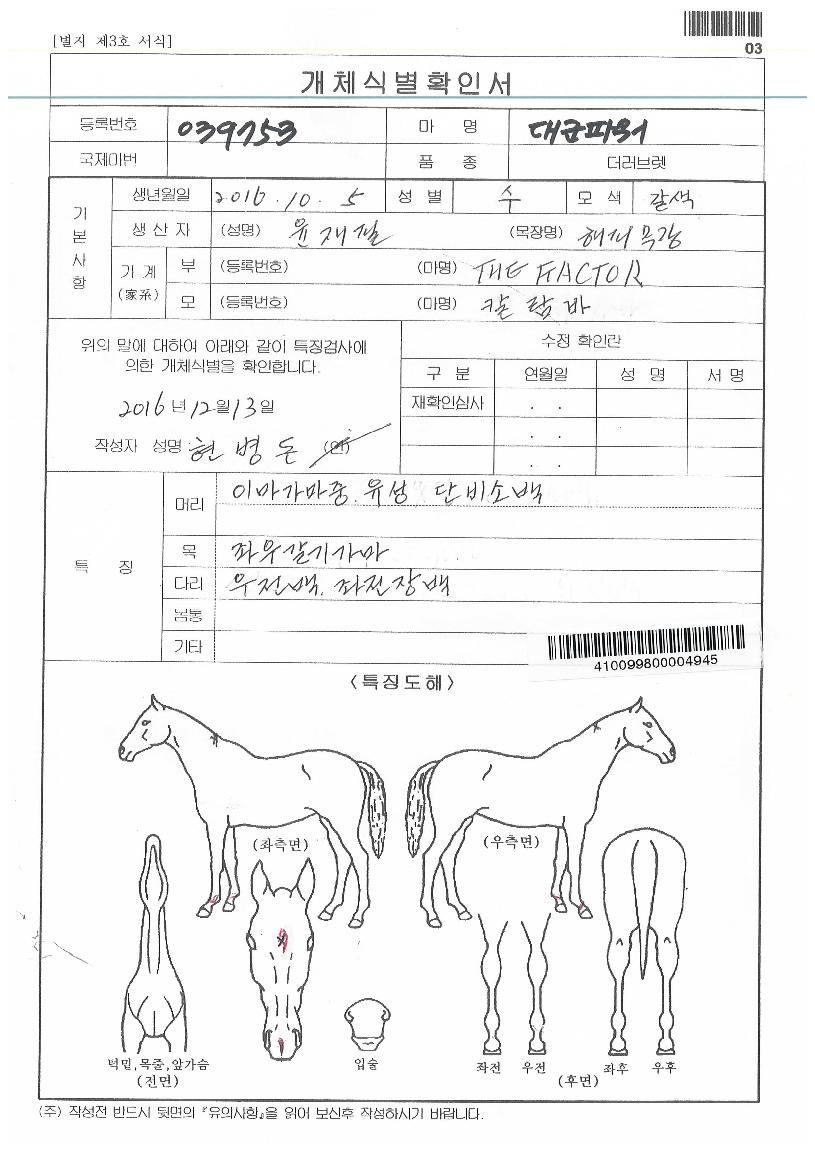 [별지 제3호 서식]
03
개체식별확인서
등록번호 039753 마 명 대군파워
국제마번 품 종 더러브렛
기본사항
생년월일 2016.10.5 성 별 수 모 색 갈색
생 산 자 (성명) 윤재필 (목장명) 해피목장
기 계 (家系) 부 (등록번호) (마명) THE FACTOR
모 (등록번호) (마명) 칼람바
위의 말에 대하여 아래와 같이 특징검사에
의한 개체식별을 확인합니다.
2016년 12월 13일
작성자 성명 현병돈 (인)
수정 확인란
구 분 연월일 성 명 서 명
재확인심사 . .
. .
. .
특 징
머리 이마가마중. 유성 단비소백
목 좌우갈기가마
다리 우전백. 좌전장백
몸통
기타
410099800004945
<특징도해>
(좌측면) (우측면)
턱밑,목줄,앞가슴
(전면)
입술
좌전 우전 좌후 우후
(후면)
(주) 작성전 반드시 뒷면의 『유의사항』을 읽어 보신후 작성하시기 바랍니다.